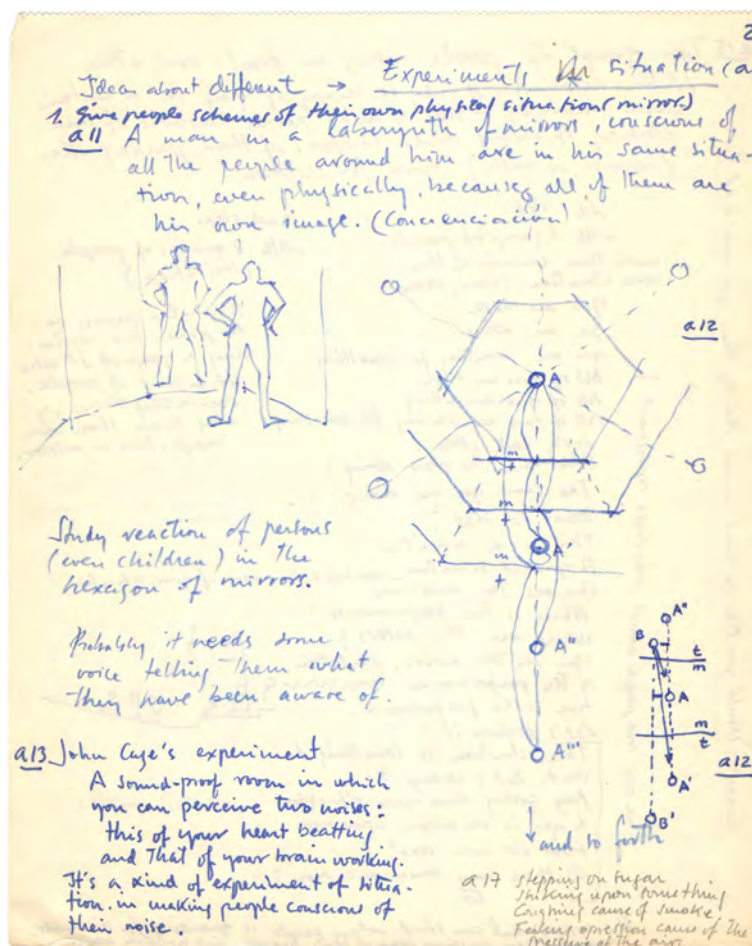 2
Ideas about different → Experiments in situation (a
1. Give people schemes of their own physical situation (mirror)
a11 A man in a laberynth of mirrors, conscious of
all the people around him are in his same situa-
tion, even physically, because all of them are
his own image. (Concienciación)
a12
A
m
t
m
t
A'
m
t
Study reaction of persons
(even children) in the
hexagon of mirrors.
Probably it needs some
voice telling them what
they have been aware of.
A"
A"
B
t
m
A
m
t
A'
B'
a12
A"'
a13 John Cage's experiment
A sound-proof room in which
you can perceive two noises:
this of your heart beatting
and that of your brain working.
It's a kind of experiment of situa-
tion. in making people conscious of
their noise.
↓ and so forth
a17 stepping on sugar
upon something
Coughing cause of smoke
Feeling opression cause of the
pressure of the air